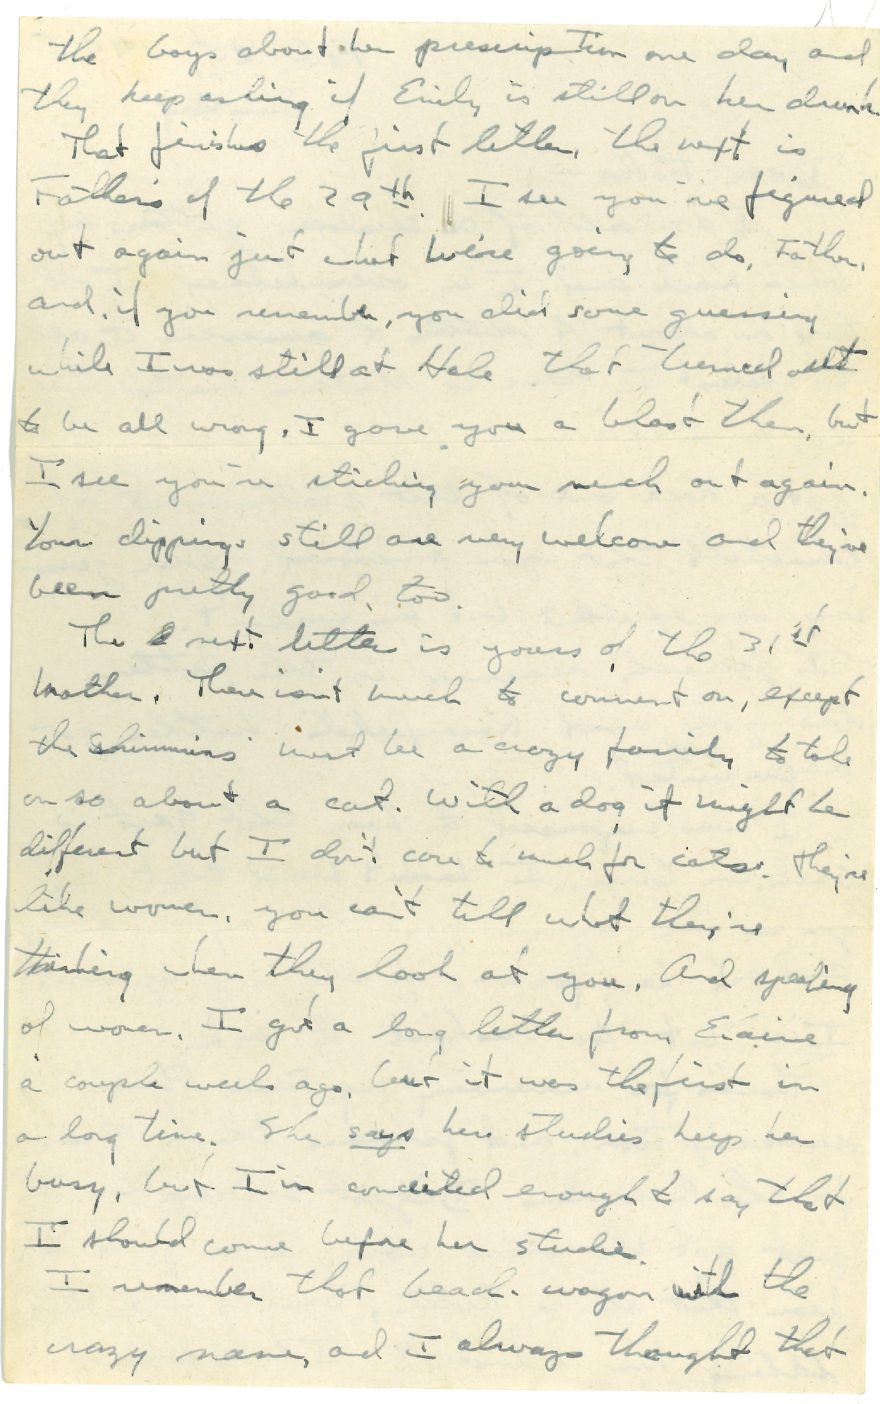 the boys about her prescription one day and
they keep asking if Emily is still on her drunk.
That finishes the first letter, the next is
Father's of the 29th. I see you've figured
out again just what we're going to do, Father,
and, if you remember, you did some guessing
while I was still at Hale that turned out
to be all wrong. I gave you a blast then, but
I see you're sticking your neck out again.
Your clippings still are very welcome and they've
been pretty good, too.
The next letter is yours of the 31st
Mother. There isn't much to comment on, except
the must be a crazy family to take
on so about a cat. With a dog it might be
different but I don't care to much for cats. They're
like women, you can't tell what they're
thinking when they look at you. And speaking
of women, I got a long letter from Elaine
a couple weeks ago, but it was the first in
a long time. She says her studies keep her
busy, but I'm conceited enough to say that
I should come before her studies.
I remember that beach-wagon with the
crazy name, and I always thought that